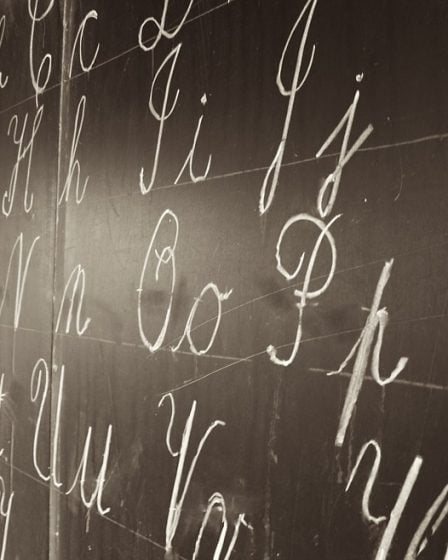 C c
H h I i J j
N n O o P p
U u V v